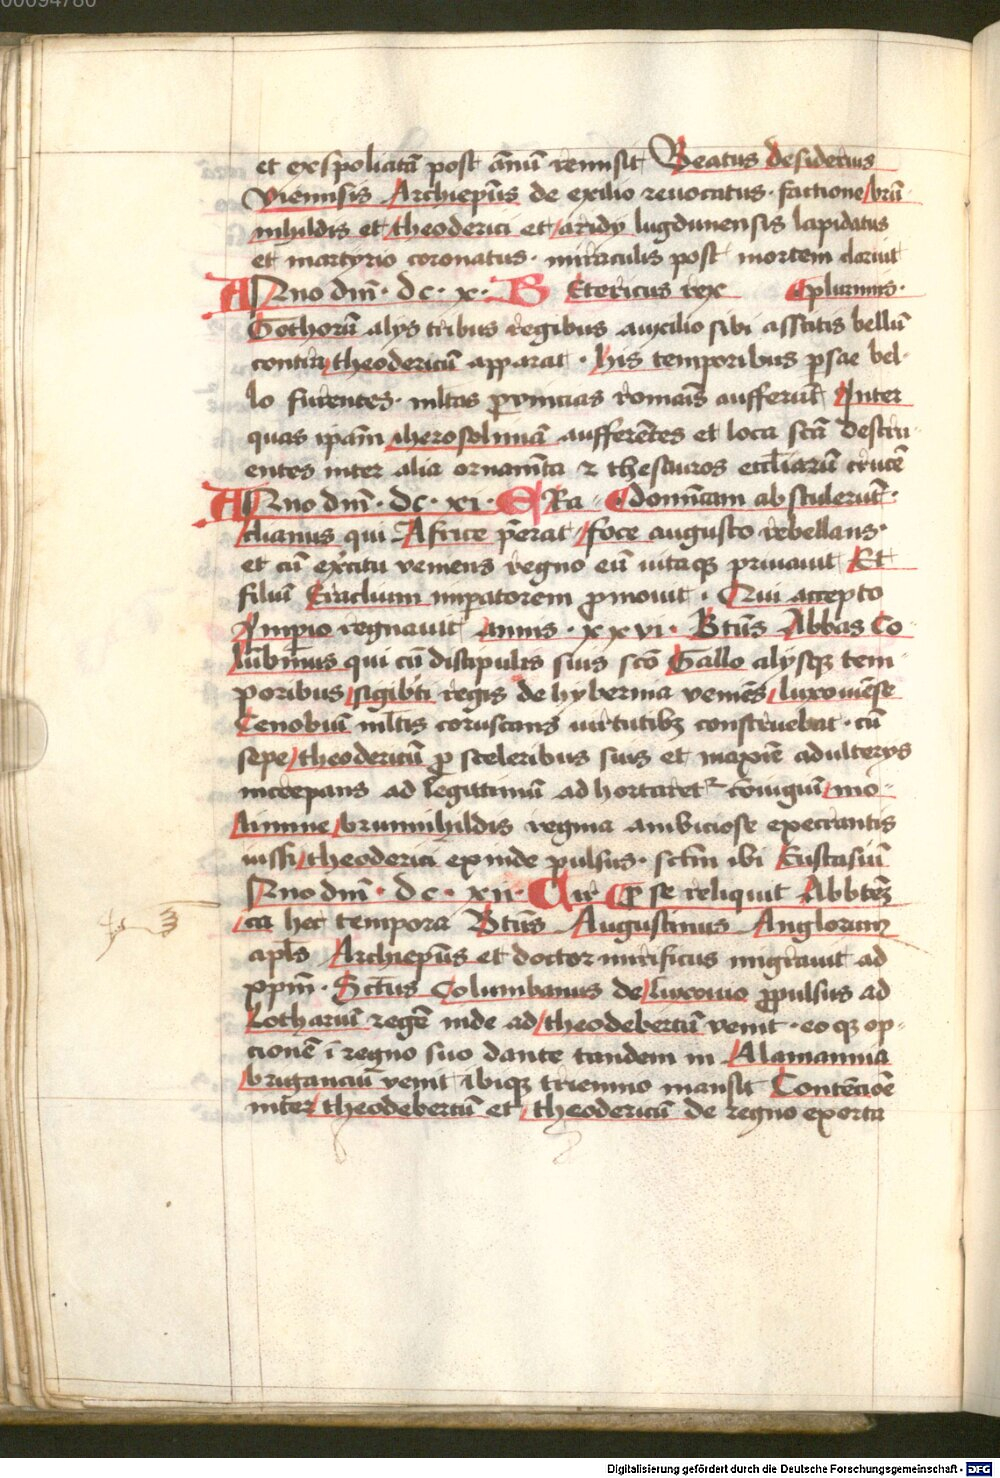 00094780
et exspoliatā post ānū remisit Beatus desiderius
viennēsis Archiepūs de exilio reuocatus · factione brū
nihildis et theoderici et aridy lugdunensis lapidatus
et martyrio coronatus · miraculis post mortem claruit
Anno dm̄ · dc · x · BEtericus rex ¶ plurimis ·
Gothorū alys tribus regibus auxilio sibi asscitis bellū
contra theodericū apparat · his temporibus psae bel
lo furentes · ml̄tas ꝓvincias romaīs aufferūt Inter
quas ip̄am iherosolimā aufferētes et loca scā destru
entes inter alia ornam̄ta ⁊ thesauros eccl̄iarū crucē
Anno dm̄ · dc · xi · ERa ¶ domīcam abstulerūt ·
clianus qui Africe p̄erat foce augusto rebellans ·
et cū ex̄citu veniens regno eū uitaqꝫ priuauit Et
filiū Eraclium imꝑatorem ꝓmouit · Qui accepto
Imꝑio regnauit annis · xxvi · Btūs Abbas Co
lūbanus qui cū discipulis suis scō Gallo alysqꝫ tem
poribus sigibti regis de hybernia veniēs luxouiēse
Cenobiū ml̄tis coruscans uirtutibꝫ construebat · cū
sepe theodericū ꝓ sceleribus suis et maxīe adulterys
increpans ad legittimū ad hortaret᷑ cōiugiū mo
nimine brunnihildis regina ambiciose execrantis
iussu theoderici exinde ꝓpulsus · sctm̄ ibi Eustasiū
Anno dm̄ · dc · xii · Cir ¶ ꝓ se reliquit Abbtēꝫ
ca hec tempora Btūs Augustinus Anglorum
apl̄s Archiepūs et doctor mirificus migrauit ad
xpm̄ · Sctūs Columbanus de luxouio ꝓpulsus ad
Lotharū regē inde ad theodebertū venit · eo qꝫ op
cionē ī regno suo dante tandem in Alamannia
brigancū venit ibiqꝫ triennio mansit Contēcioē
inter theodebertū et theodericū de regno exorta
Digitalisierung gefördert durch die Deutsche Forschungsgemeinschaft - DFG